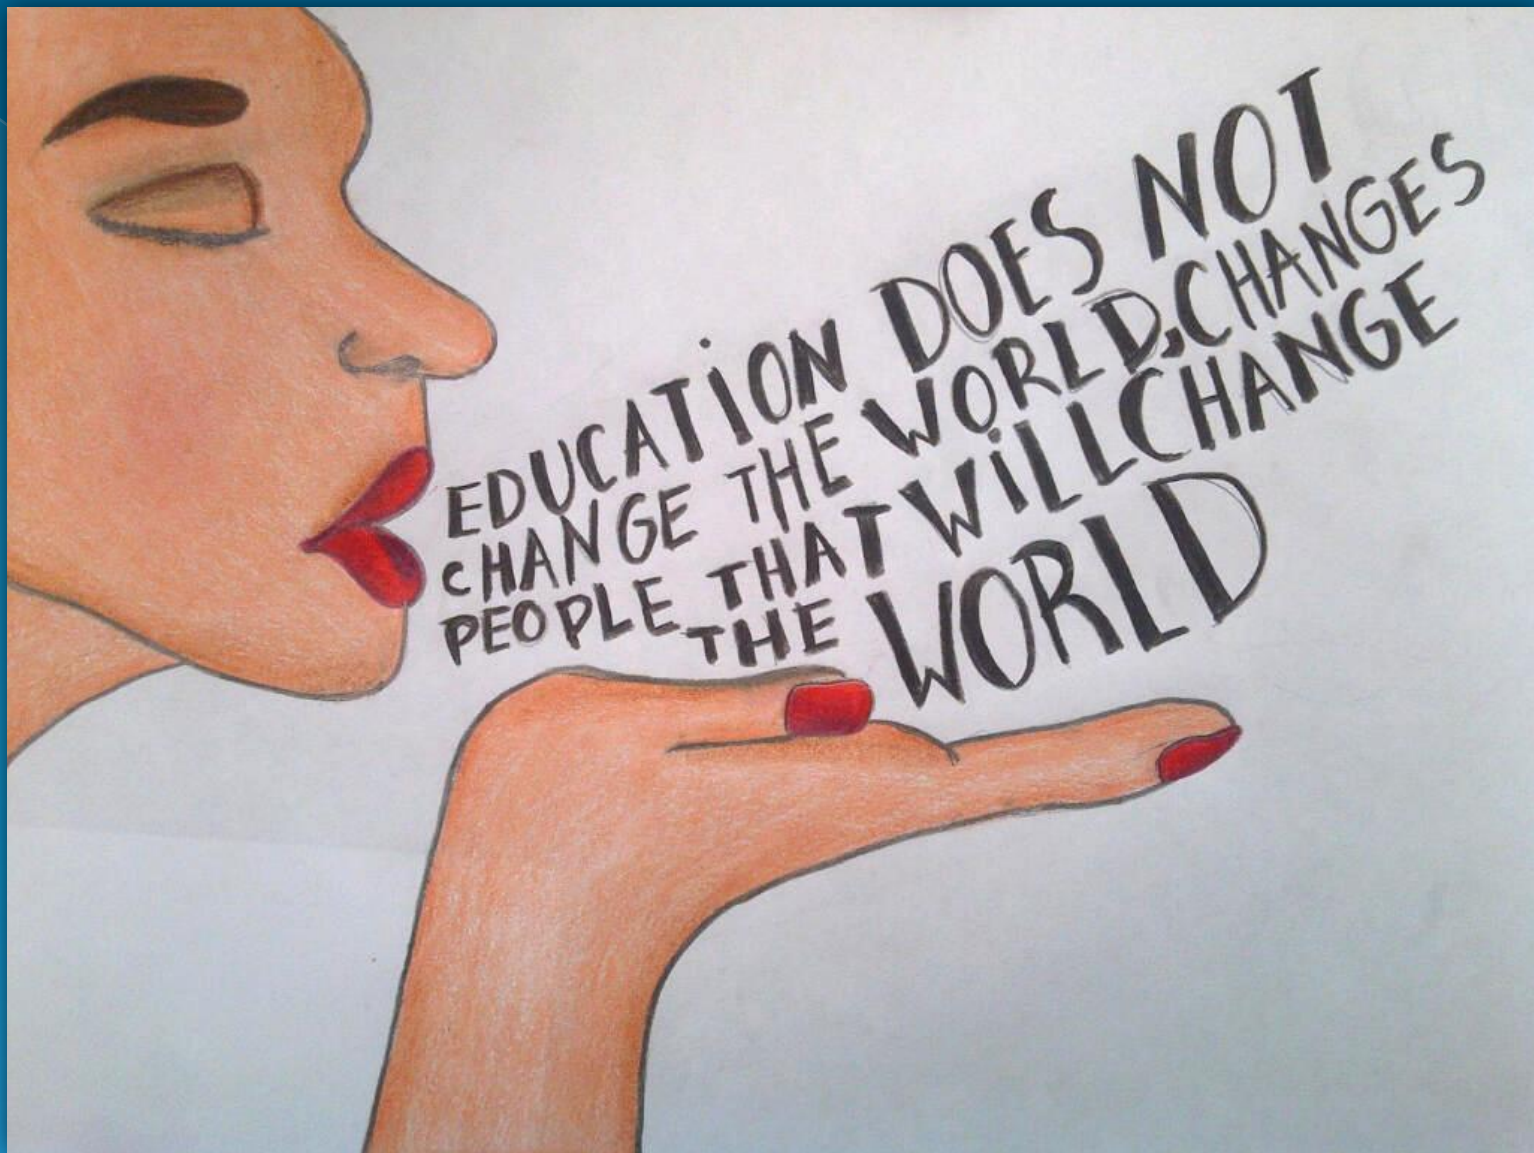 EDUCATION DOES NOT
CHANGE THE WORLD, CHANGES
PEOPLE THAT WILL CHANGE
THE WORLD